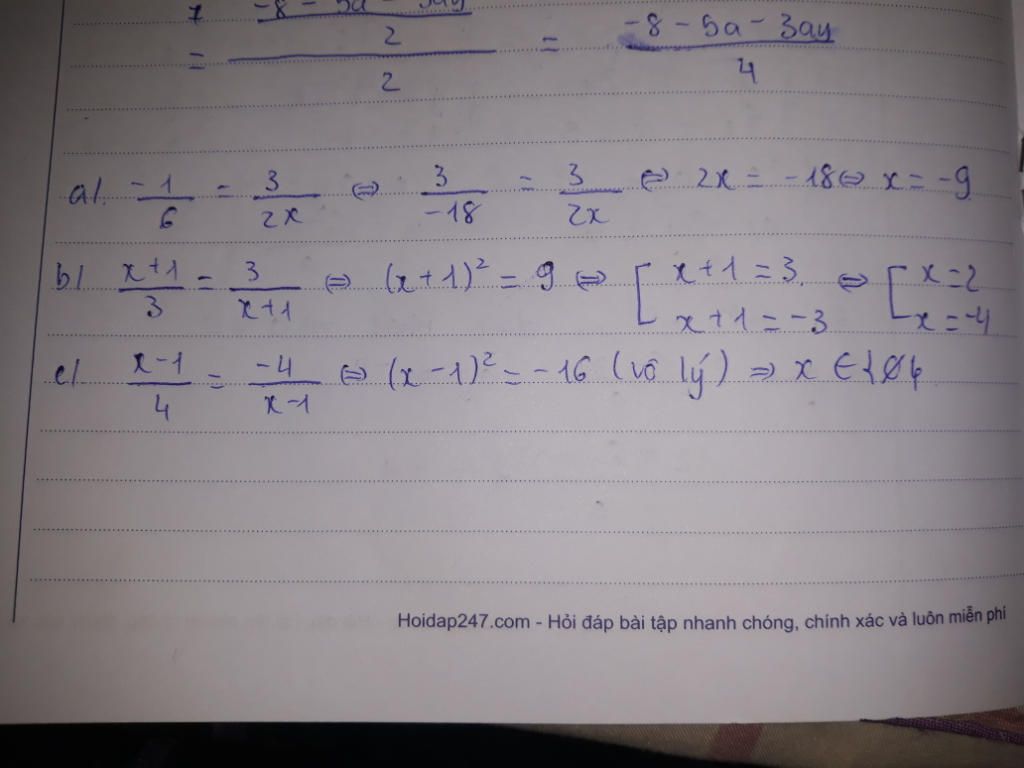 -8 - 5a - 3ay
= 2 / 2 = -8 - 5a - 3ay / 4
a/. -1/6 = 3/2x ⇔ 3/-18 = 3/2x ⇔ 2x = -18 ⇔ x = -9
b/ x+1/3 = 3/x+1 ⇔ (x+1)² = 9 ⇔ [ x+1 = 3 ⇔ [ x = 2
x+1 = -3 x = -4
c/ x-1/4 = -4/x-1 ⇔ (x-1)² = -16 (vô lý) ⇒ x ∈ {∅}
Hoidap247.com - Hỏi đáp bài tập nhanh chóng, chính xác và luôn miễn phí